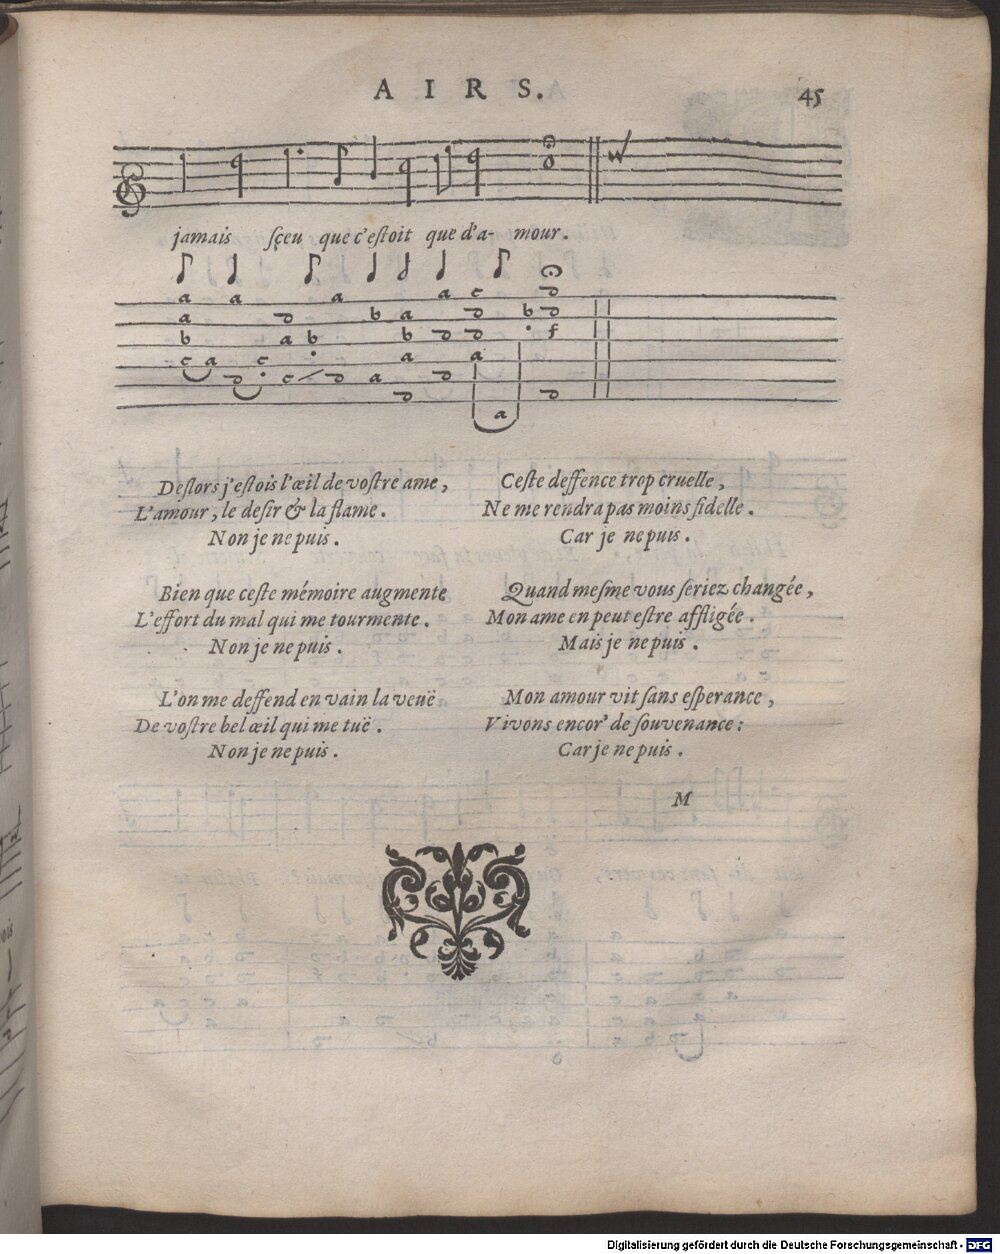 AIRS.
45
jamais sçeu que c'estoit que d'a- mour.
Deslors j'estois l'œil de vostre ame,
L'amour, le desir & la flame.
Non je ne puis.
Bien que ceste mémoire augmente
L'effort du mal qui me tourmente.
Non je ne puis.
L'on me deffend en vain la veuë
De vostre bel œil qui me tuë.
Non je ne puis.
Ceste deffence trop cruelle,
Ne me rendra pas moins fidelle.
Car je ne puis.
Quand mesme vous seriez changée,
Mon ame en peut estre affligée.
Mais je ne puis.
Mon amour vit sans esperance,
Vivons encor' de souvenance:
Car je ne puis.
M
Digitalisierung gefördert durch die Deutsche Forschungsgemeinschaft - DFG